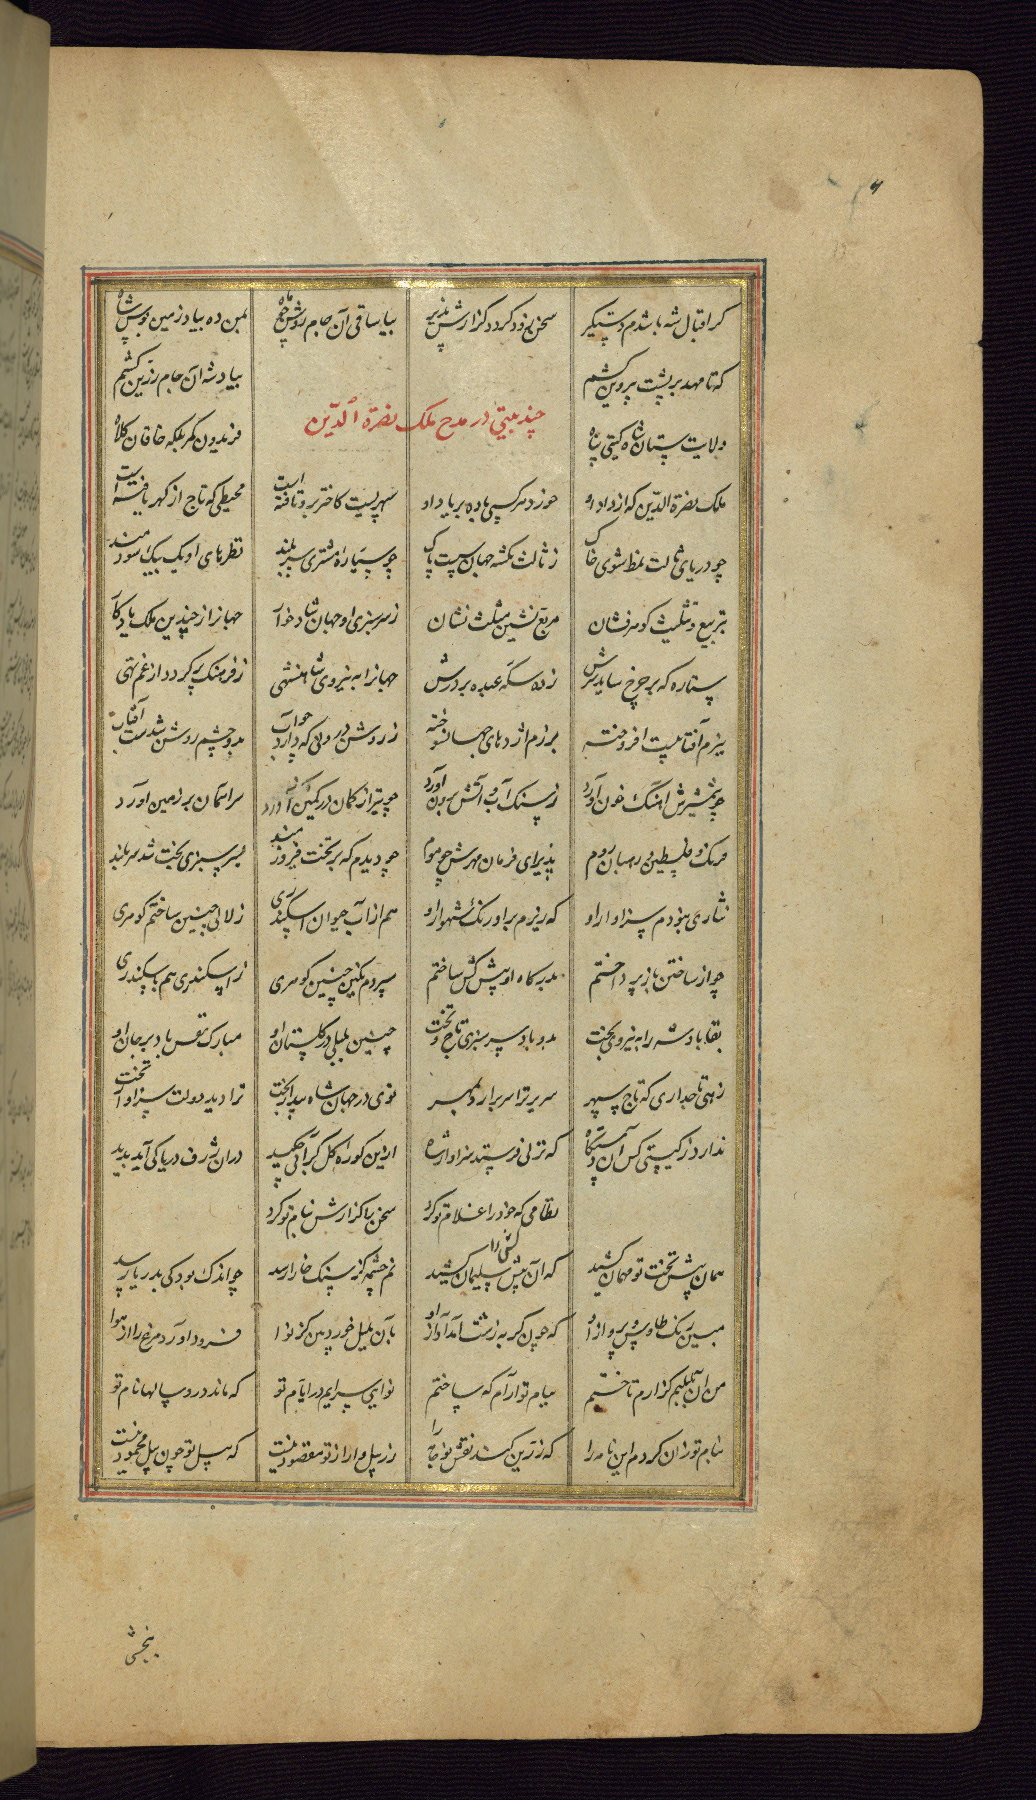 گر اقبال شه باشدم دستگیر سخن زود گردد گزارش پذیر بیا ساقی آن جام روشن چو ماه بمن ده بیاد زمین بوس شاه
که تا مهد بر پشت پروین کشیم بیاد شه آن جام زرین کشیم
چند بیتی در مدح ملک نصرة الدین
ولایت ستان شاه گیتی پناه فریدون کمر بلکه خاقان کلاه
ملک نصرة الدین که از داد او خورد هر کسی باده بر یاد او سپهریست کاختر برو تافته است محیطی که تاج از گهر یافته است
چو دریای ثالث نمط شوی خاک ز ثالث یکشه جهان پاک چو سیاره مشتری سربلند نظرهای او یک بیک سودمند
بتربیع و تثلیث گوهر فشان مربع نشین مثلث نشان ز سرسبزی او جهان شاد خوار جهانرا از چندین ملک یادگار
ستاره که بر چرخ ساید سرش زده سکه عبده بر درش جهانرا به نیروی شاهنشهی ز فرهنگ پر کرد و از غم تهی
ببزم آفتابیست افروخته برزم اژدهای جهانسوخته ز روشن دلی که دارد چو آب بدو چشم روشن شدست آفتاب
چو شمشیرش آهنگ خون آورد ز سنگ آب و آتش برون آورد چو تیر از کمان در کمین آورد سر آسمان بر زمین آورد
فرنگ و فلسطین و رهبان روم پذیرای فرمان مهرش چو موم چو دیدم که بر تخت فیروزمند بسرسبزی بخت شد سربلند
نثاری نبودم سزاوار او که ریزم بر اورنگ شهوار او هم از آب حیوان اسکندری زلالی چنین ساختم گوهری
چو از ساختن باز پرداختم بدرگاه او پیش کش ساختم سپردم نگین چنین گوهری ز اسکندری هم باسکندری
بقا باد شه را به نیروی بخت بدو باد سرسبزی تاج و تخت چنین بلبلی در گلستان او مبارک نفس باد بر جان او
زهی تاجداری که تاج سپهر سریر ترا سر برآرد بمهر توی در جهان شاه بیدار بخت ترا دید دولت سزاوار تخت
ندارد ز گیتی کس آن دستگاه که نزلی فرستد سزاوار شاه ازین کوزه گل گر آبی چکید در آن ژرف دریا کی آید پدید
نظامی که خود را غلام تو کرد سخن را گزارش بنام تو کرد
همان پیش تخت تو مهمان کشید که آن پیش سلیمان کشید نم چشمه کز سنگ خارا رسد چو اندک بود کی بدریا رسد
مبین رنگ طاوس و پرواز او که چون گربه زشت آمد آواز او بآن بلبل خرد بین کز نوا فرود آورد مرغ را از هوا
من آن بلبلم کز ارم تاختم بباغ تو آرام که ساختم نوایی سرایم در ایام تو که ماند درو سالها نام تو
بنام تو زان کردم این نامه را که زرین کند نقش تو خامه را زر پیل وار از تو مقصود نیست که پیل تو چون پیل محمود نیست
ببخشی